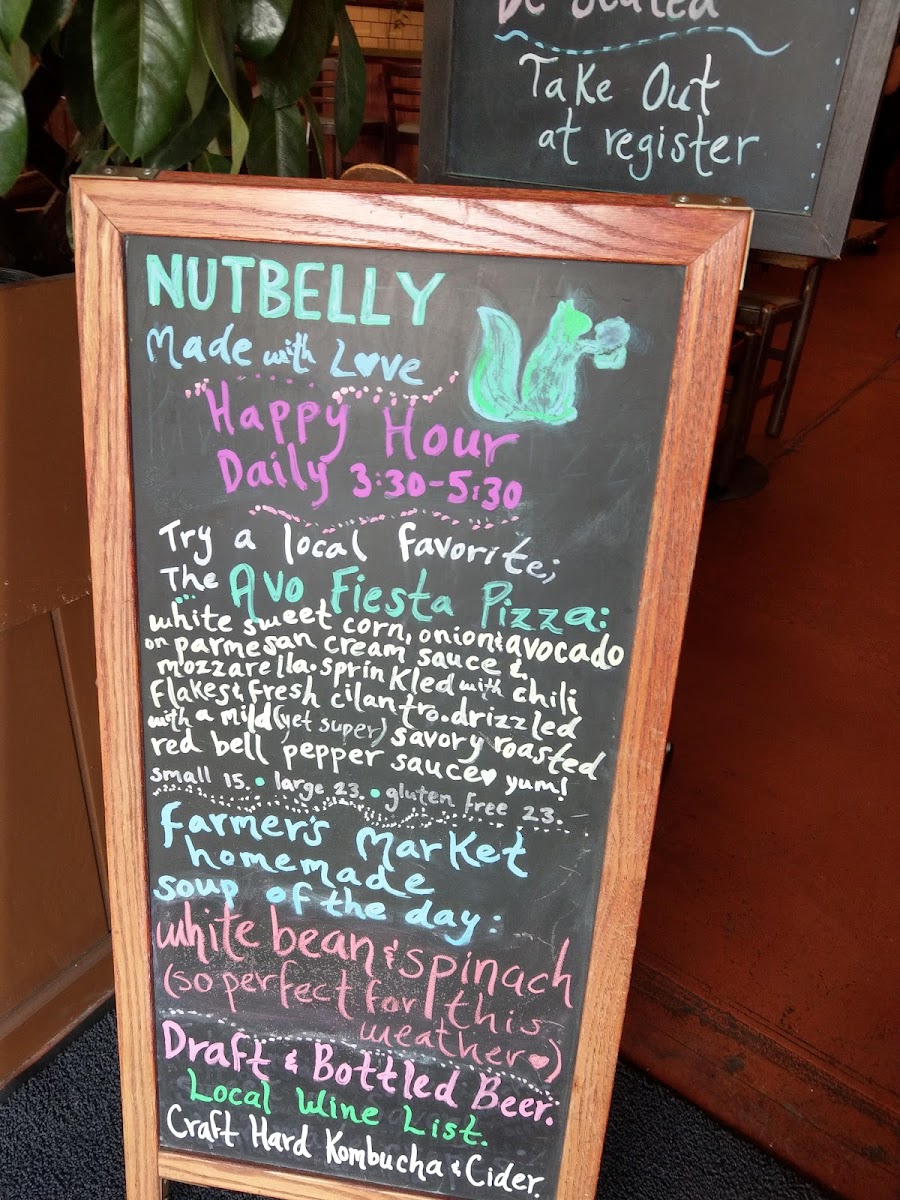 be seated
Take Out
at register
NUTBELLY
Made with L♥ve
Happy Hour
Daily 3:30-5:30
Try a local favorite;
The Avo Fiesta Pizza:
white sweet corn, onion & avocado
on parmesan cream sauce &
mozzarella. sprinkled with chili
flakes & fresh cilantro. drizzled
with a mild (yet super) savory roasted
red bell pepper sauce ♥ yum!
small 15. • large 23. • gluten free 23.
farmer's Market
homemade
soup of the day:
white bean & spinach
(so perfect for this
weather ♥)
Draft & Bottled Beer.
Local Wine List.
Craft Hard Kombucha & Cider.